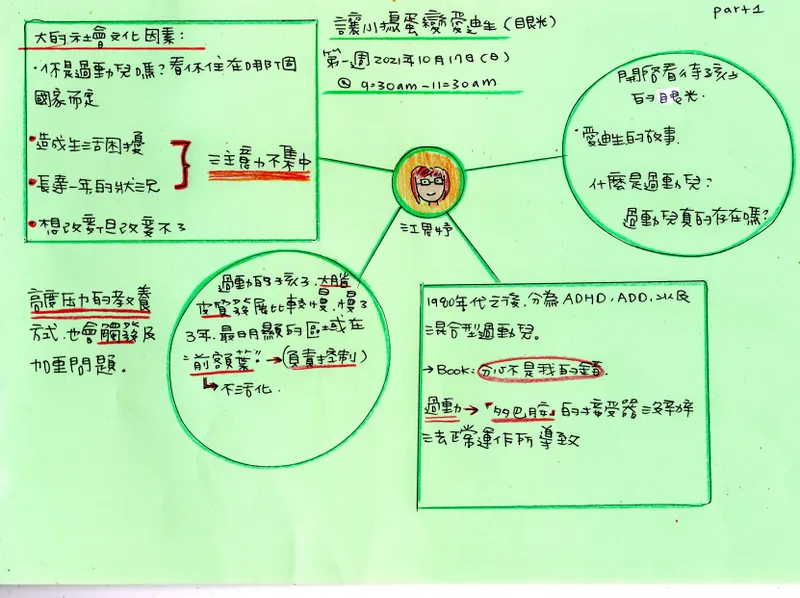 part 1
讓小搗蛋變愛迪生(眼光)
第一週 2021年10月17日(日)
9:30am-11:30am
大的社會文化因素:
·你是過動兒嗎?看你住在哪個
國家而定
·造成生活困擾
·長達一年的狀況
·想改變但改變不了
注意力不集中
開啓看待孩子
的眼光.
·愛迪生的故事.
什麼是過動兒?
過動兒真的存在嗎?
江思妤
過動的孩子,大腦
皮質發展比較慢,慢了
3年.最明顯的區域在
"前額葉"→(負責控制)
↳不活化.
高度压力的教養
方式.也會觸發及
加重問題.
1980年代之後,分為ADHD,ADD,以及
混合型過動兒。
→Book:分心不是我的錯.
過動→「多巴胺」的接受器沒辦
法正常運作所導致